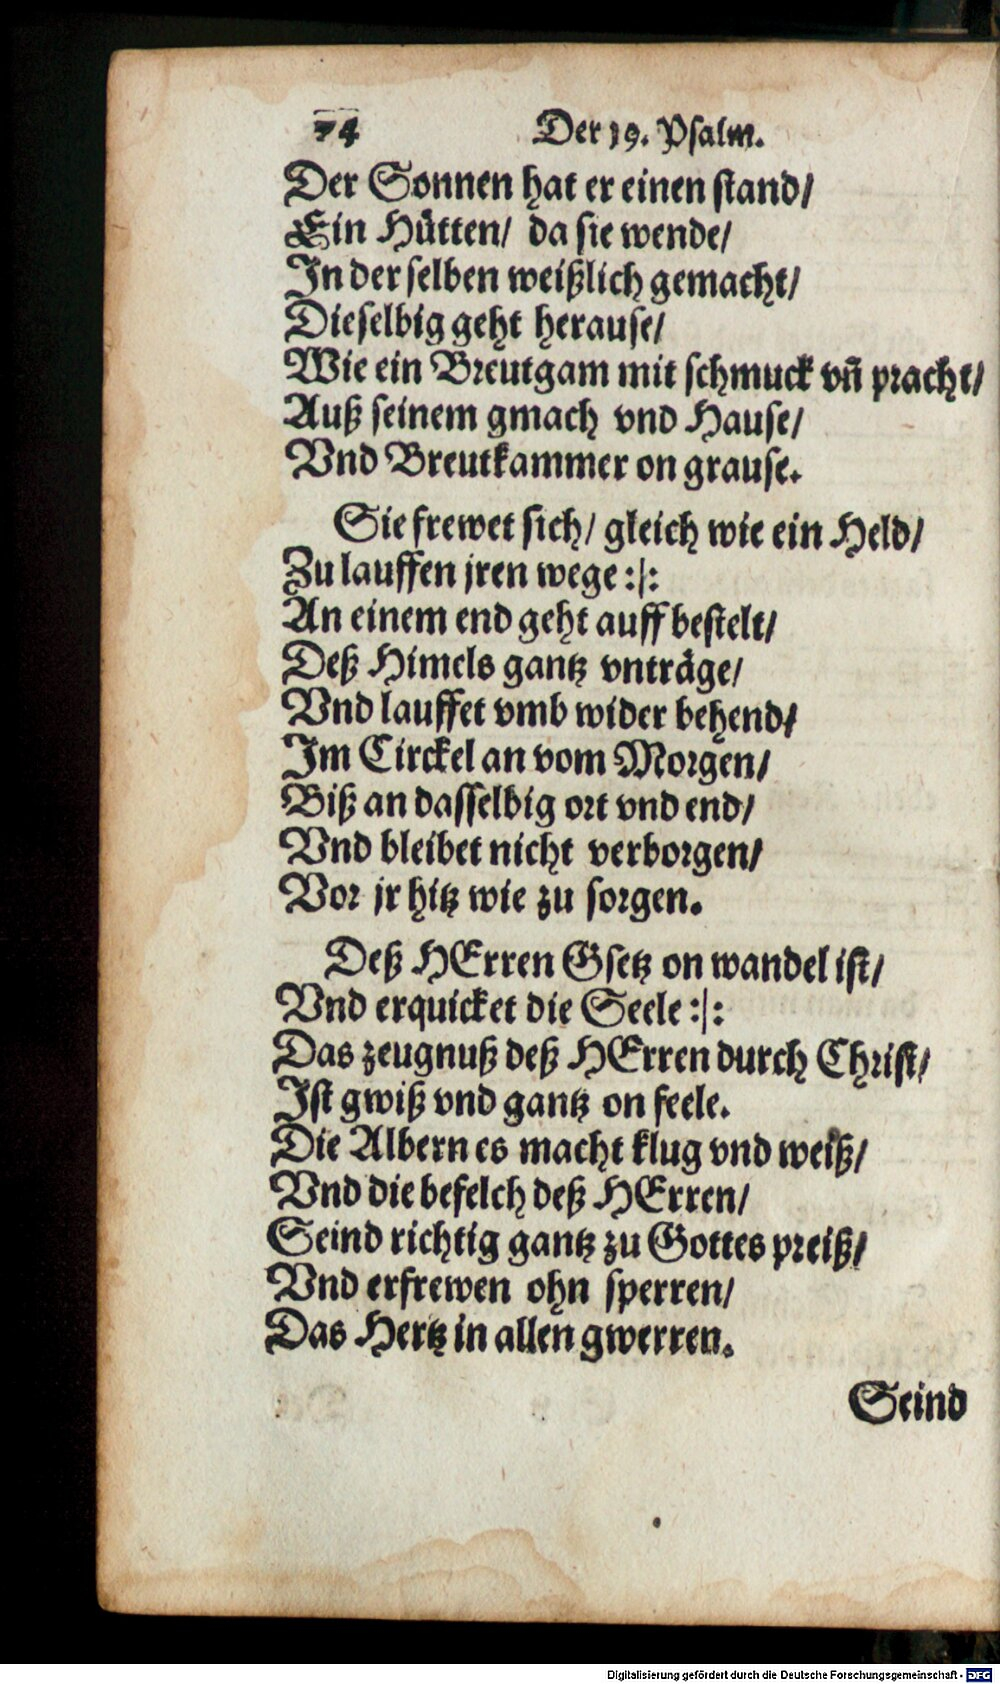 74 Der 19. Psalm.
Der Sonnen hat er einen stand/
Ein Hütten/ da sie wende/
In der selben weißlich gemacht/
Dieselbig geht herause/
Wie ein Breutgam mit schmuck vñ pracht/
Auß seinem gmach vnd Hause/
Vnd Breutkammer on grause.
Sie frewet sich/ gleich wie ein Held/
Zu lauffen jren wege :|:
An einem end geht auff bestelt/
Deß Himels gantz vnträge/
Vnd lauffet vmb wider behend/
Im Circkel an vom Morgen/
Biß an dasselbig ort vnd end/
Vnd bleibet nicht verborgen/
Vor jr hitz wie zu sorgen.
Deß HErren Gsetz on wandel ist/
Vnd erquicket die Seele :|:
Das zeugnuß deß HErren durch Christ/
Ist gwiß vnd gantz on feele.
Die Albern es macht klug vnd weiß/
Vnd die befelch deß HErren/
Seind richtig gantz zu Gottes preiß/
Vnd erfrewen ohn sperren/
Das Hertz in allen gwerren.
Seind
Digitalisierung gefördert durch die Deutsche Forschungsgemeinschaft - DFG